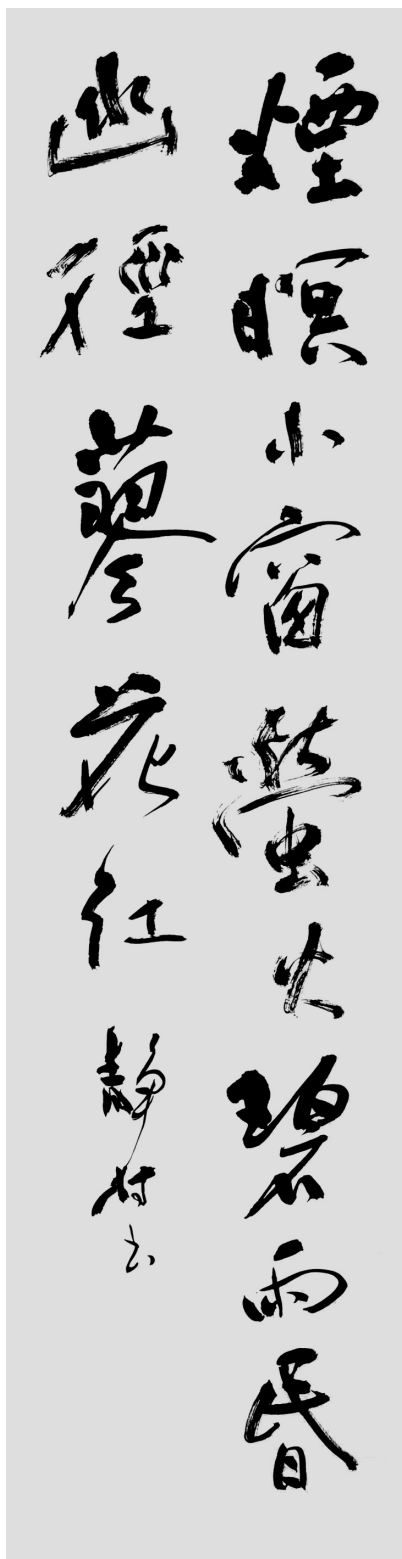 煙暝小窗螢火碧雨昏
幽徑蓼花紅 靜村書